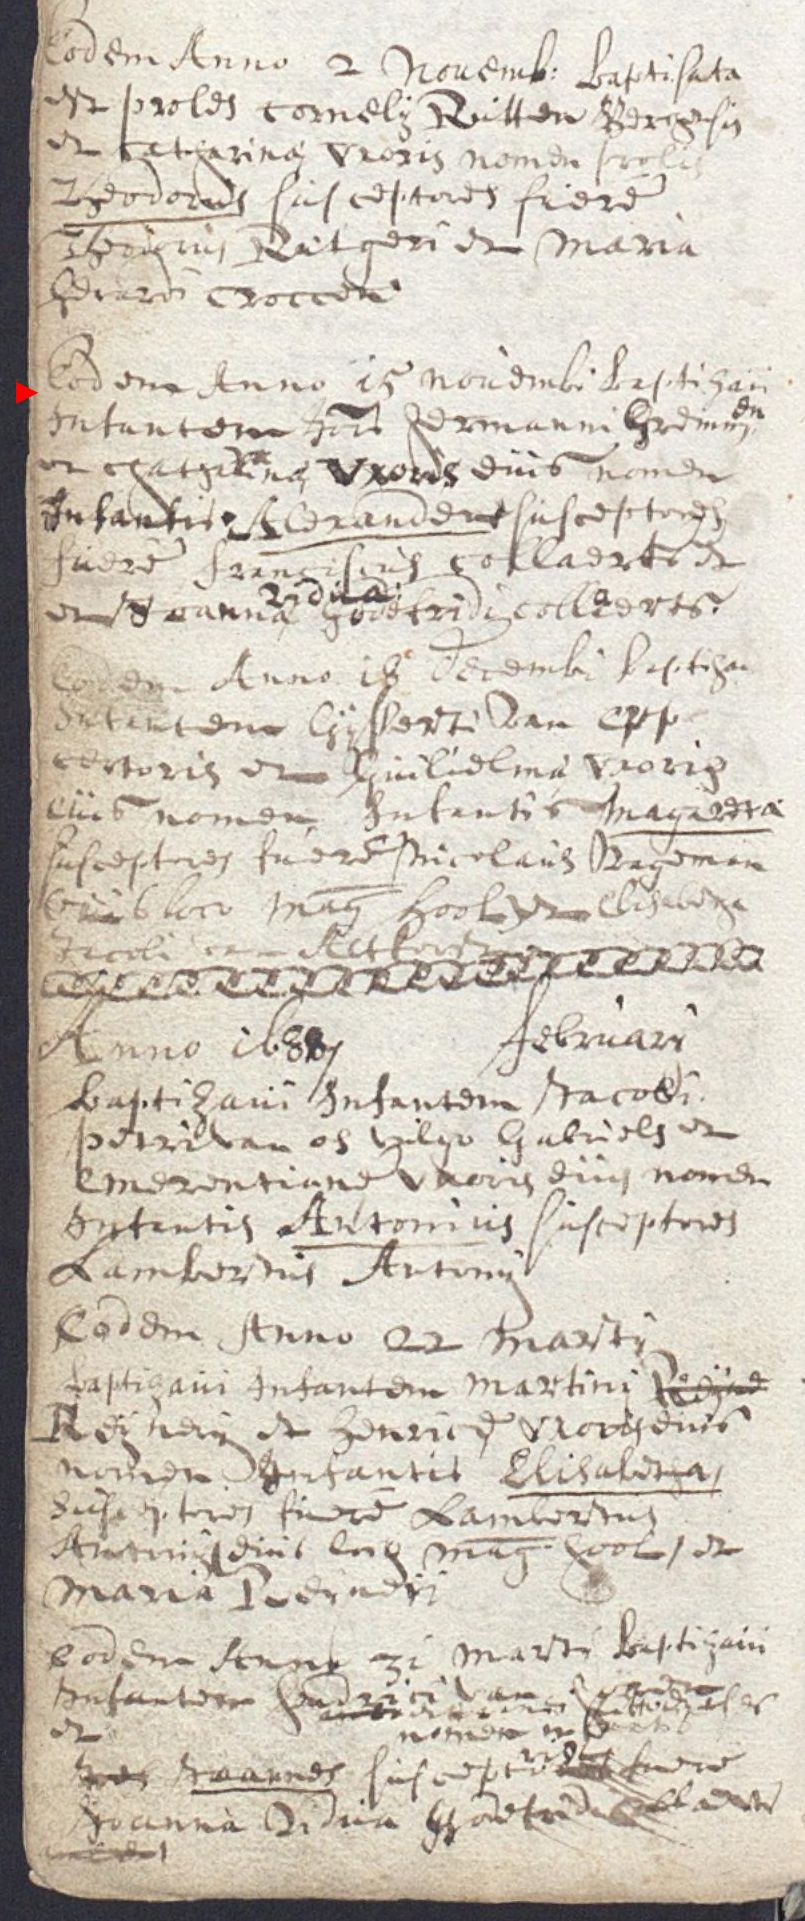 Eodem Anno 2 Novemb: baptisata
est proles Cornelij Ritten Bergesis
et Catharinae Uxoris nomen prolis
Theodorus susceptores fuere
Theodorus Rutgeri et Maria
Gerardi Croccen
Eodem Anno 15 Novembi baptizavi
Infantem Jois Hermanni
et Catharinae Uxoris eius nomen
Infantis Alexander susceptores
fuere franciscus Collaerts et
et Joanna vidua Godefridi Collaerts.
Eodem Anno 18 Decembi baptiza
Infantem Gysberti van Epp
et Guilielmae Uxoris
eius nomen Infantis Magareta
susceptores fuere Nicolaus Rageman
eius loco Mag hool et Elisabetha
Jacobi
Anno 1688 februarij
baptizavi Infantem Jacobi
petri van os vulgo Gabriels et
Emerentianae Uxoris eius nomen
Infantis Antonius susceptores
Lambertus Antonij
Eodem Anno 22 Martij
baptizavi Infantem Martini
Reijnerij et henricae Uxoris eius
nomen Infantis Elisabetha
susceptores fuere Lambertus
Antonij eius loco Mag hool, et
Maria Reijnerij
Eodem Anno 31 Martij baptizavi
Infantem van
et nomen
Joannes susceptores fuere
Joanna vidua Godefridi Collaerts